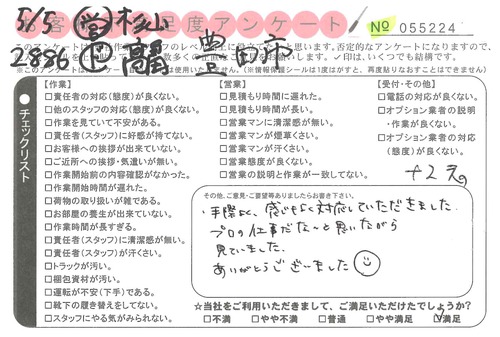 お客さま満足度アンケート
No 055224
5/5 営 桜山
2886 正 高 豊田市
【作業】
□責任者の対応(態度)が良くない。
□他のスタッフの対応(態度)が良くない。
□作業を見ていて不安がある。
□責任者(スタッフ)に好感が持てない。
□お客様への挨拶が出来ていない。
□ご近所への挨拶・気遣いが無い。
□作業開始前の内容確認がなかった。
□作業開始時間が遅れた。
□荷物の取り扱いが雑である。
□お部屋の養生が出来ていない。
□作業時間が長すぎる。
□責任者(スタッフ)に清潔感が無い。
□責任者(スタッフ)が汗さい。
□トラックが汚い。
□梱包資材が汚い。
□運転が不安(下手)である。
□靴下の履き替えをしてない。
□スタッフにやる気がみられない。
【営業】
□見積もり時間に遅れた。
□見積もり時間が長い。
□営業マンに清潔感が無い。
□営業マンが煙草くさい。
□営業マンが汗くさい。
□営業態度が良くない。
□営業の説明と作業が一致してない。
【受付・その他】
□電話の対応が良くない。
□オプション業者の説明
・作業が良くない。
□オプション業者の対応
(態度)が良くない。
チェックリスト
その他、ご意見・ご要望等ありましたらお書き下さい。
・手際よく、感じもよく対応していただきました。
プロの仕事だな〜と思いながら
見ていました。
ありがとうございました
☆当社をご利用いただきまして、ご満足いただけたでしょうか?
□不満 □やや不満 □普通 □やや満足 ☑満足